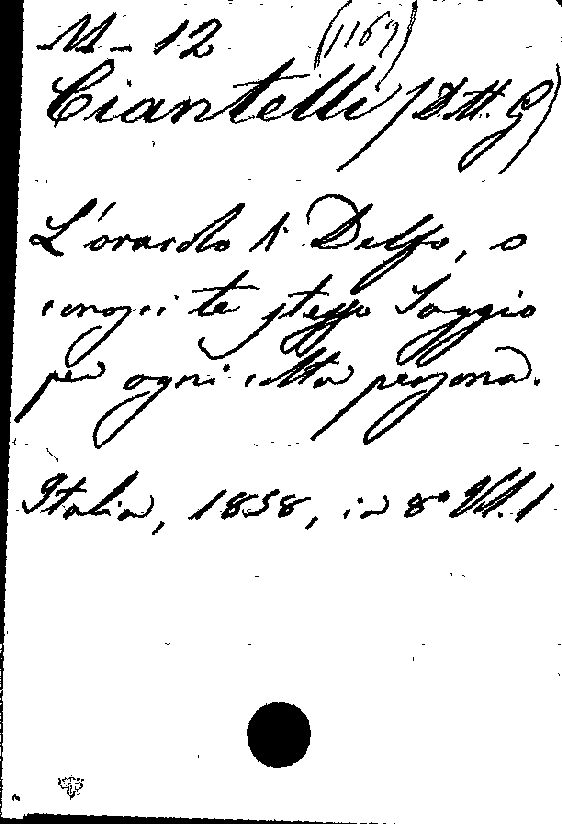 M - 12 (1167)
Ciantelli (Dott. G)
L'oracolo di Delfo, o
conosci te stesso Saggio
per ogni colta persona.
Italia, 1858, in 8° Vol. 1